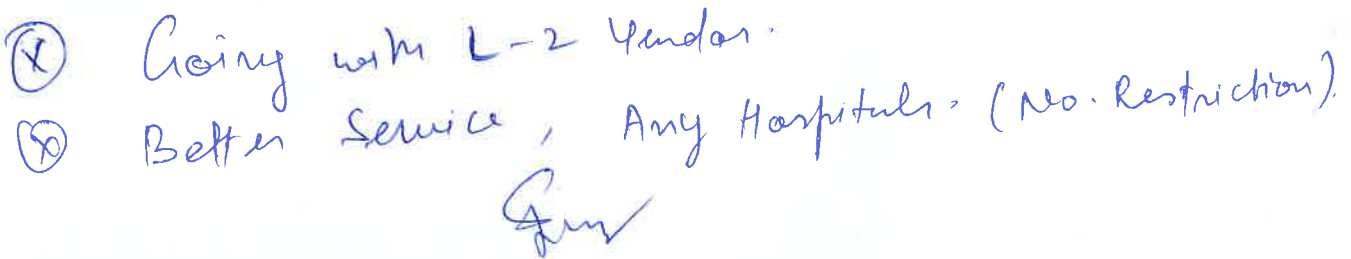 Going with L-2 Vendor.
Better Service, Any Hospitals. (No. Restriction).